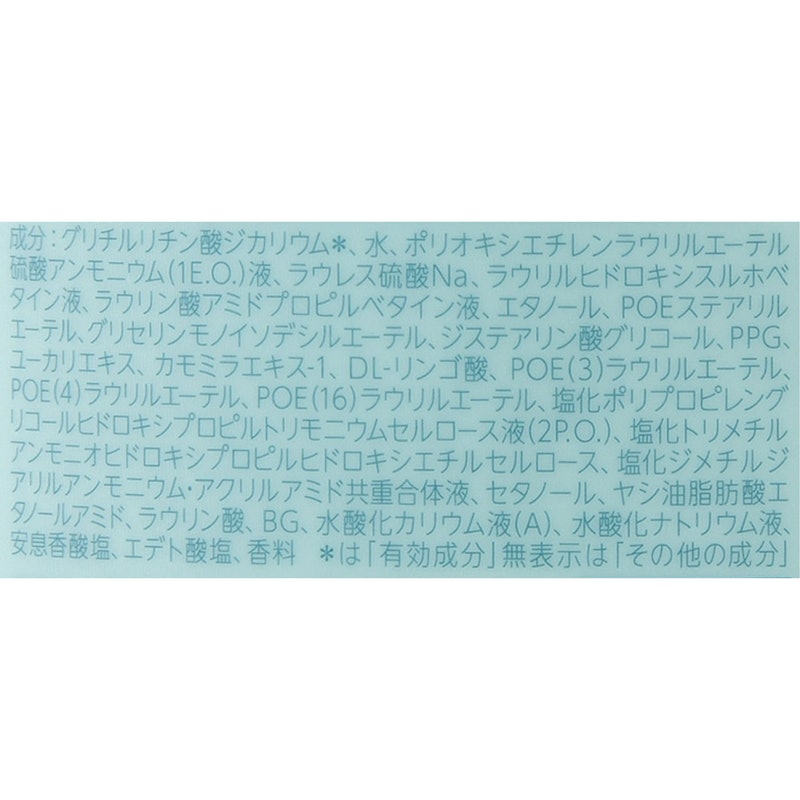 成分：グリチルリチン酸ジカリウム＊、水、ポリオキシエチレンラウリルエーテル
硫酸アンモニウム(1E.O.)液、ラウレス硫酸Na、ラウリルヒドロキシスルホベ
タイン液、ラウリン酸アミドプロピルベタイン液、エタノール、POEステアリル
エーテル、グリセリンモノイソデシルエーテル、ジステアリン酸グリコール、PPG、
ユーカリエキス、カモミラエキス-1、DL-リンゴ酸、POE(3)ラウリルエーテル、
POE(4)ラウリルエーテル、POE(16)ラウリルエーテル、塩化ポリプロピレング
リコールヒドロキシプロピルトリモニウムセルロース液(2P.O.)、塩化トリメチル
アンモニオヒドロキシプロピルヒドロキシエチルセルロース、塩化ジメチルジ
アリルアンモニウム・アクリルアミド共重合体液、セタノール、ヤシ油脂肪酸エ
タノールアミド、ラウリン酸、BG、水酸化カリウム液(A)、水酸化ナトリウム液、
安息香酸塩、エデト酸塩、香料　＊は「有効成分」無表示は「その他の成分」